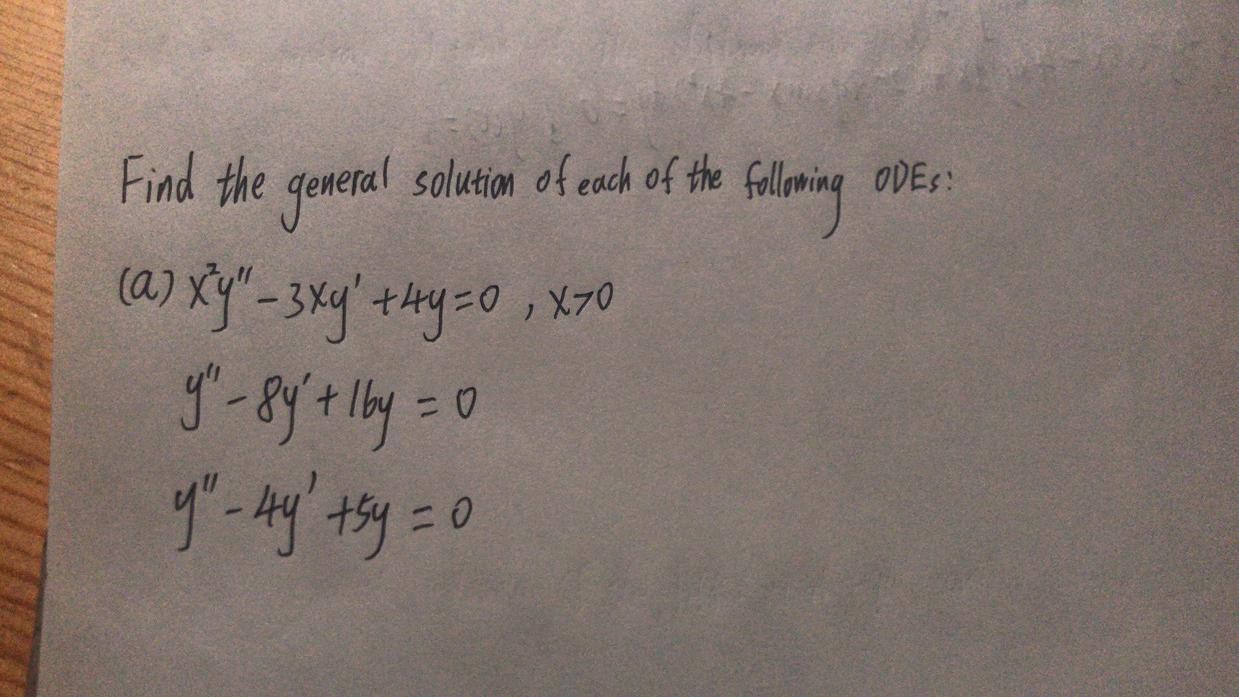 Find the general solution of each of the following ODEs:
(a) x²y" - 3xy' + 4y = 0 , x>0
y" - 8y' + 16y = 0
y" - 4y' + 5y = 0